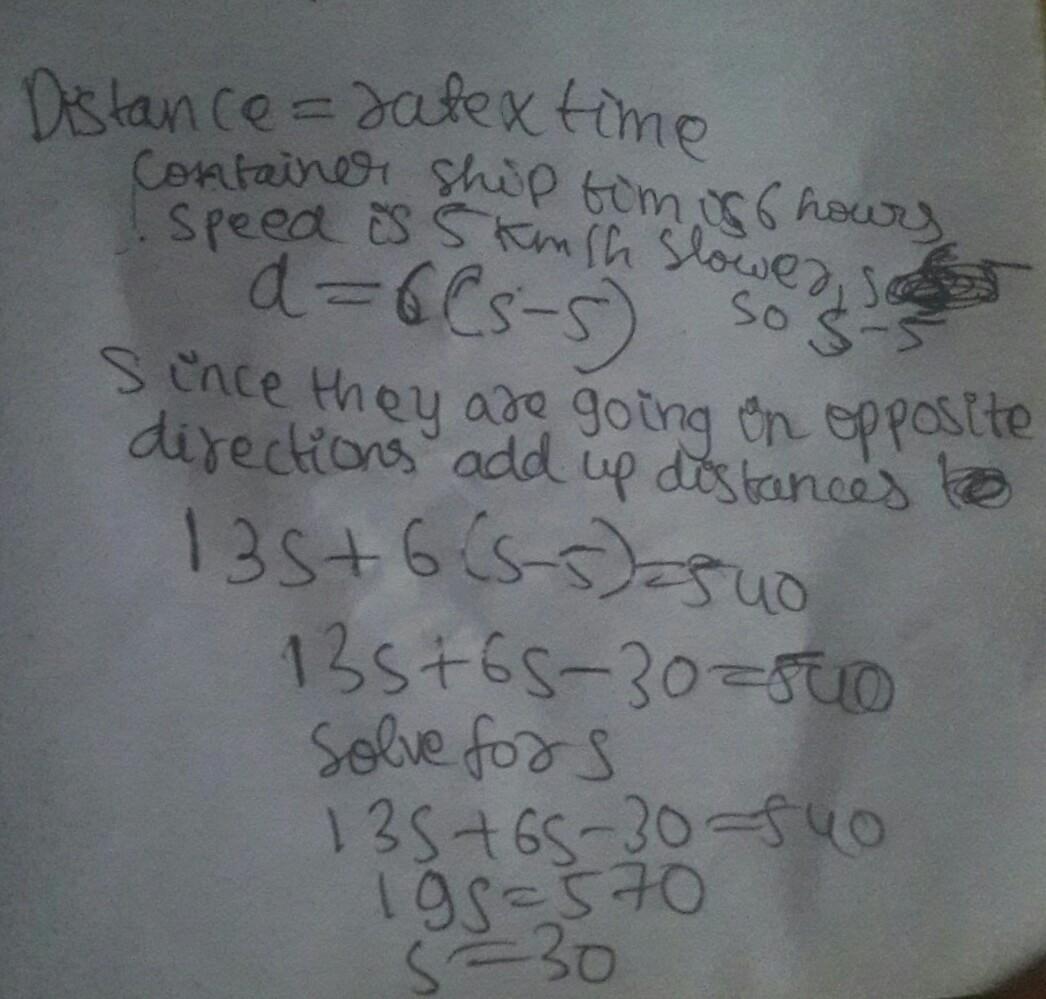 Distance = rate x time
Container ship tim is 6 hours
speed is 5 km/h slower, s
d = 6(s-5) so s-5
Since they are going in opposite
directions add up distances
13s + 6(s-5) = 540
13s + 6s - 30 = 540
Solve for s
13s + 6s - 30 = 540
19s = 570
s = 30